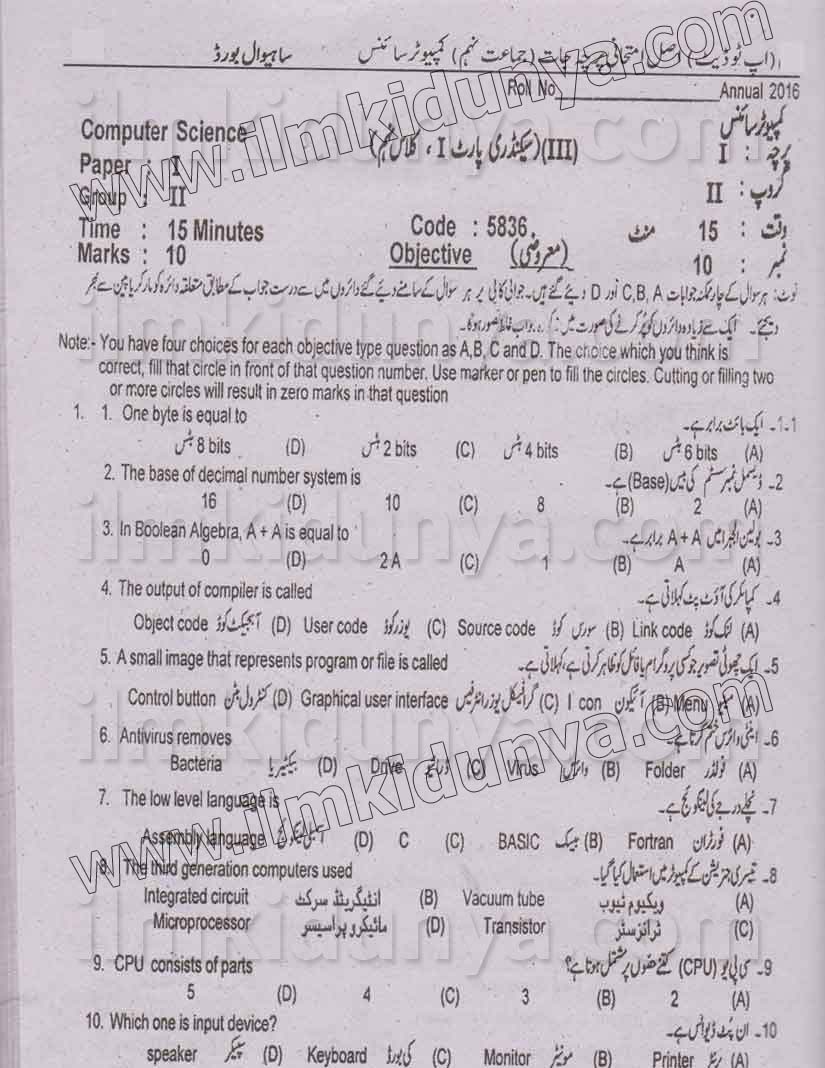 (اپ ٹو ڈیٹ) اصل امتحانی پرچہ جات (جماعت نہم) کمپیوٹر سائنس ساہیوال بورڈ
Roll No Annual 2016
Computer Science کمپیوٹر سائنس
Paper : I (III) (سیکنڈری پارٹ I ، کلاس نہم) پرچہ : I
Group : II گروپ : II
Time : 15 Minutes Code : 5836 وقت : 15 منٹ
Marks : 10 Objective (معروضی) نمبر : 10
نوٹ: ہر سوال کے چار ممکنہ جوابات C,B, A اور D دیئے گئے ہیں۔ جوابی کاپی پر ہر سوال کے سامنے دیئے گئے دائروں میں سے درست جواب کے مطابق متعلقہ دائرہ کو مارکر یا پین سے بھر
دیجئے۔ ایک سے زیادہ دائروں کو پُر کرنے کی صورت میں جواب غلط تصور ہوگا۔
Note:- You have four choices for each objective type question as A,B, C and D. The choice which you think is
correct, fill that circle in front of that question number. Use marker or pen to fill the circles. Cutting or filling two
or more circles will result in zero marks in that question
1. 1. One byte is equal to 1-1۔ ایک بائٹ برابر ہے۔
8 bits بٹس (D) 2 bits بٹس (C) 4 bits بٹس (B) 6 bits بٹس (A)
2. The base of decimal number system is 2۔ ڈیسمل نمبر سسٹم کی بیس (Base) ہے۔
16 (D) 10 (C) 8 (B) 2 (A)
3. In Boolean Algebra, A + A is equal to 3۔ بولین الجبرا میں A + A برابر ہے۔
0 (D) 2 A (C) 1 (B) A (A)
4. The output of compiler is called 4۔ کمپائلر کی آؤٹ پٹ کہلاتی ہے۔
Object code آبجیکٹ کوڈ (D) User code یوزر کوڈ (C) Source code سورس کوڈ (B) Link code لنک کوڈ (A)
5. A small image that represents program or file is called 5۔ ایک چھوٹی تصویر جو کسی پروگرام یا فائل کو ظاہر کرتی ہے، کہلاتی ہے۔
Control button کنٹرول بٹن (D) Graphical user interface گرافیکل یوزر انٹرفیس (C) I con آئیکون (B) Menu مینیو (A)
6. Antivirus removes 6۔ اینٹی وائرس ختم کرتا ہے۔
Bacteria بیکٹیریا (D) Drive ڈرائیو (C) Virus وائرس (B) Folder فولڈر (A)
7. The low level language is 7۔ نچلے درجے کی لینگوئج ہے۔
Assembly language اسمبلی لینگوئج (D) C (C) BASIC بیسک (B) Fortran فورٹران (A)
8. The third generation computers used 8۔ تیسری جنریشن کے کمپیوٹر میں استعمال کیا گیا۔
Integrated circuit انٹیگریٹڈ سرکٹ (B) Vacuum tube ویکیوم ٹیوب (A)
Microprocessor مائیکرو پراسیسر (D) Transistor ٹرانزسٹر (C)
9. CPU consists of parts 9۔ سی پی یو (CPU) کتنے حصوں پر مشتمل ہوتا ہے؟
5 (D) 4 (C) 3 (B) 2 (A)
10. Which one is input device? 10۔ ان پُٹ ڈیوائس ہے۔
speaker سپیکر (D) Keyboard کی بورڈ (C) Monitor مونیٹر (B) Printer پرنٹر (A)
www.ilmkidunya.com
ilmkidunya.com
ilmkidunya.com
ilmkidunya.com
ilmkidunya.com
www.ilmkidunya.com
ilmkidunya.com
ilmkidunya.com